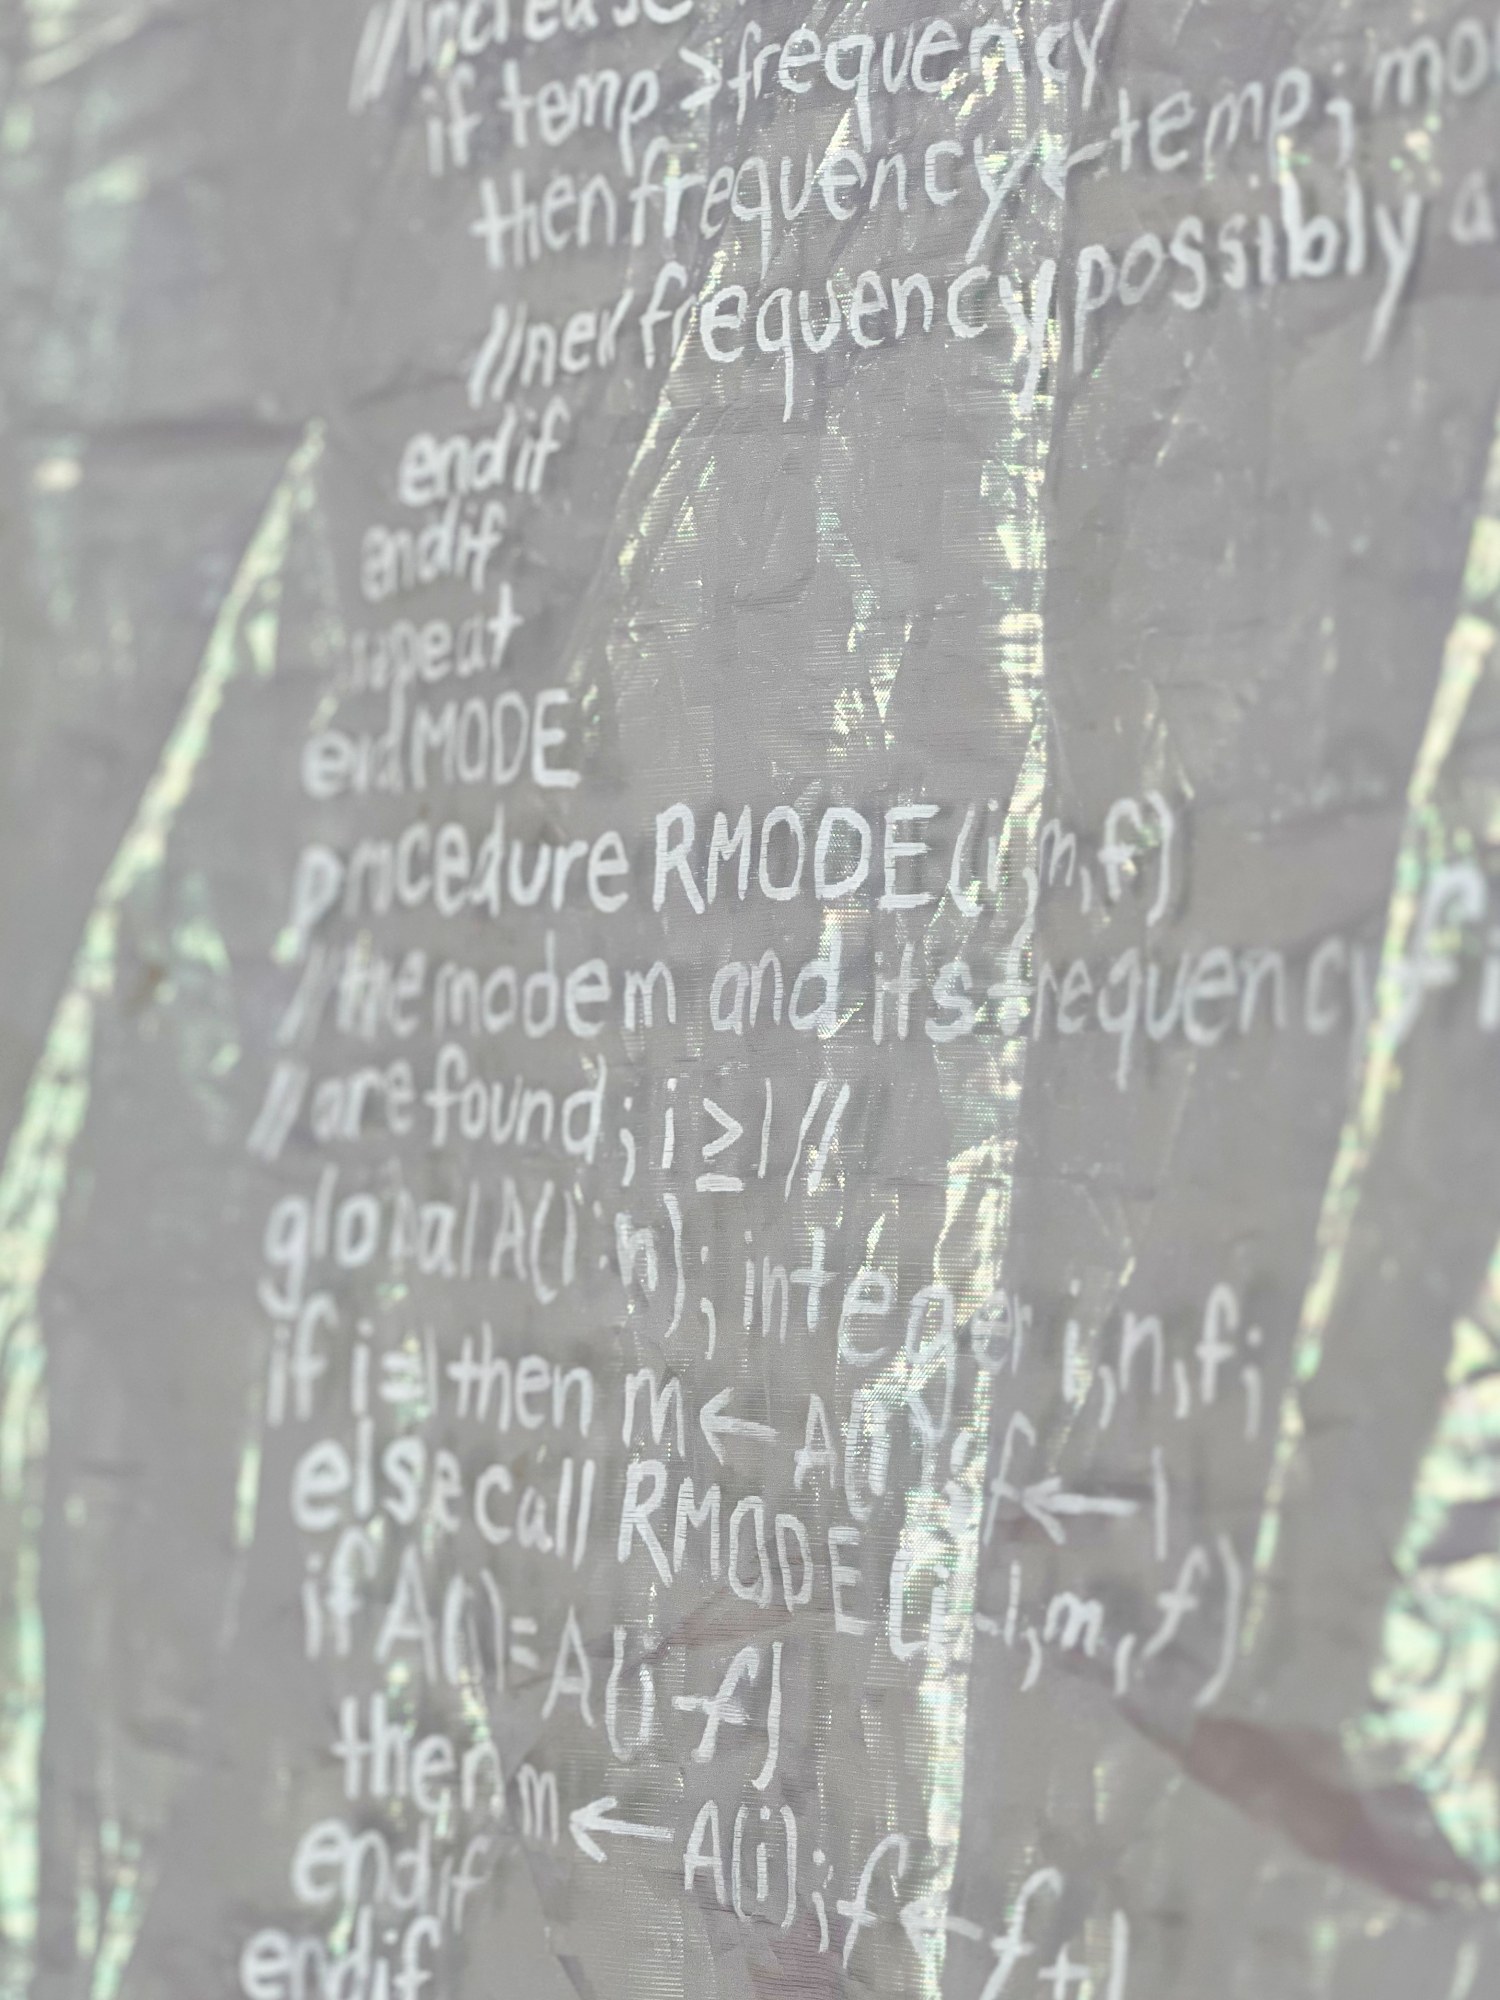 //increase
if temp > frequency
then frequency ← temp; mo
//new frequency possibly a
endif
endif
repeat
end MODE
procedure RMODE(i,m,f)
//the mode m and its frequency f i
//are found; i ≥ 1 //
global A(1:n); integer i,n,f;
if i=1 then m ← A(1); f ← 1
else call RMODE(i-1,m,f)
if A(i)=A(i-f)
then m ← A(i); f ← f+1
endif
endif